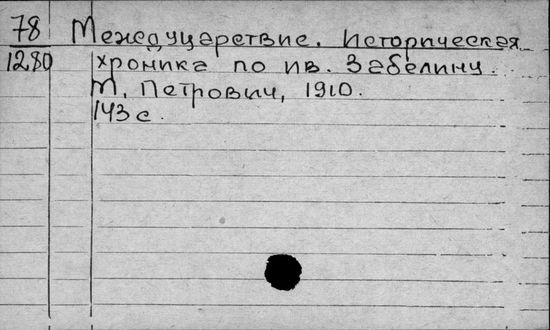 78 Междуцарствие. Историческая
1280 хроника по Ив. Забелину.
М, Петрович, 1910.
143 с.